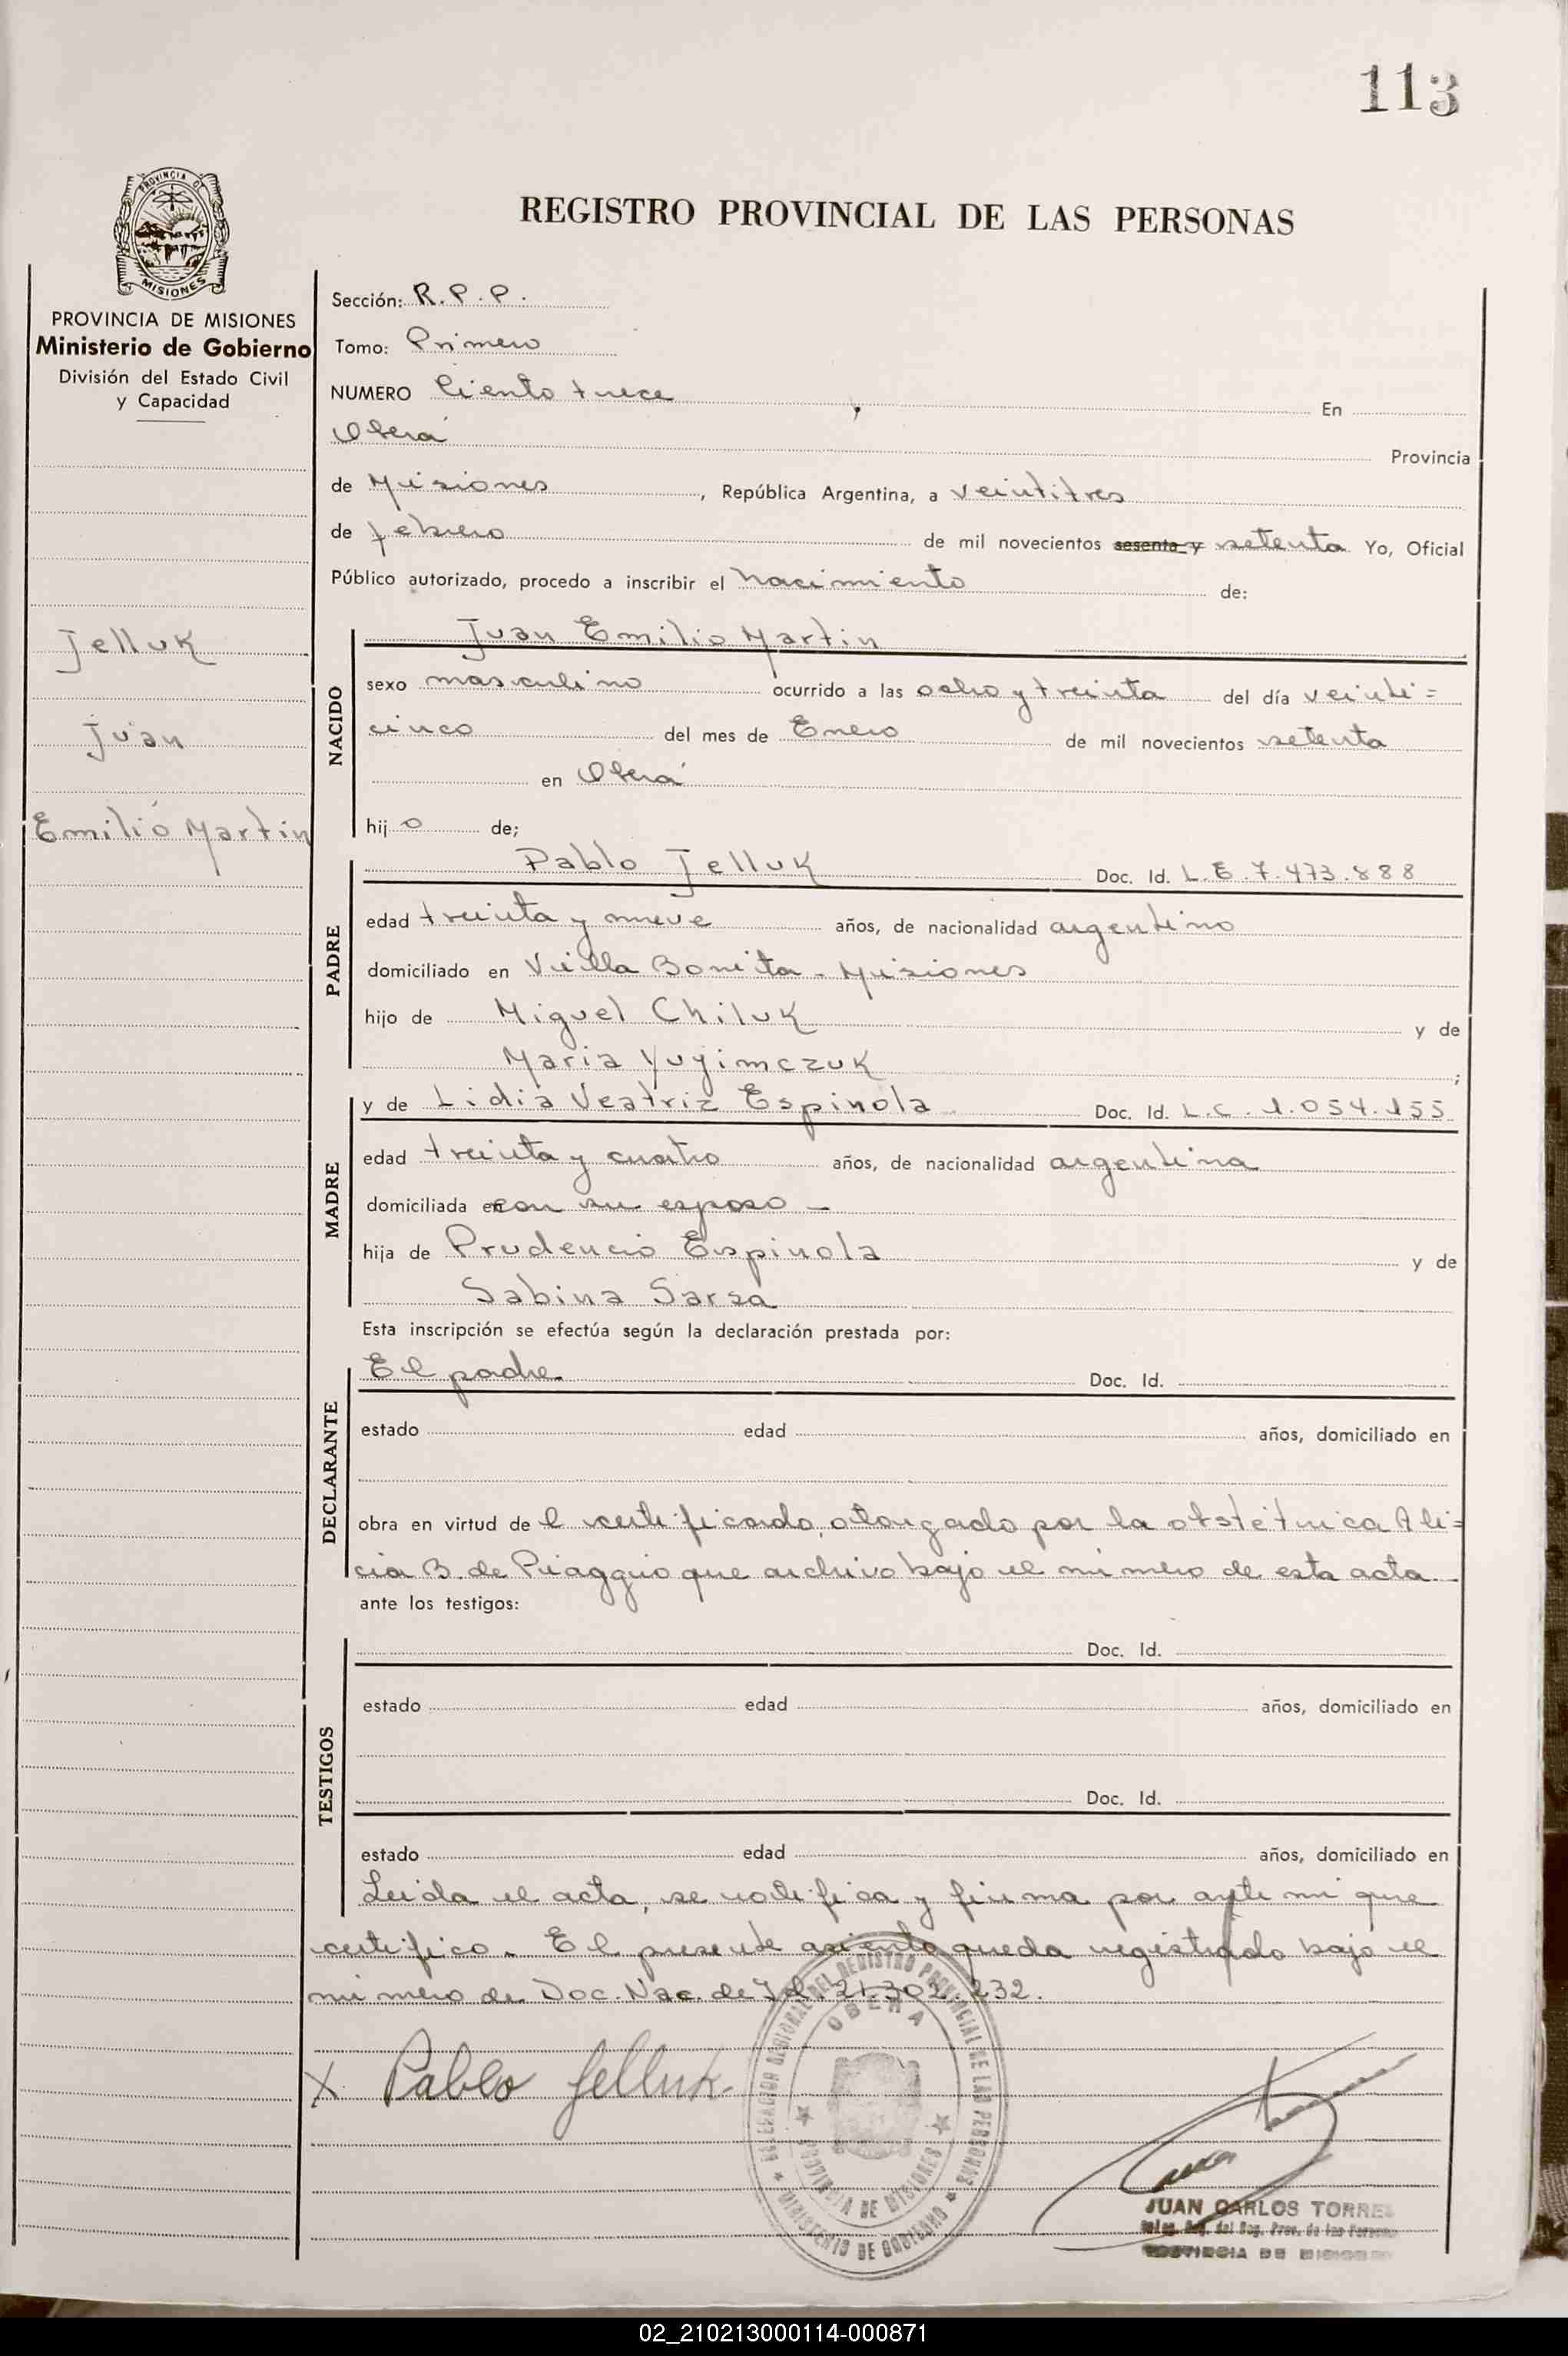 113
PROVINCIA DE
MISIONES
REGISTRO PROVINCIAL DE LAS PERSONAS
PROVINCIA DE MISIONES
Ministerio de Gobierno
División del Estado Civil
y Capacidad
Jelluk
Juan
Emilio Martin
Sección: R.P.P.
Tomo: Primero
NUMERO Ciento trece En
Oberá Provincia
de Misiones, República Argentina, a veintitres
de febrero de mil novecientos sesenta y setenta Yo, Oficial
Público autorizado, procedo a inscribir el nacimiento de:
NACIDO
Juan Emilio Martin
sexo masculino ocurrido a las ocho y treinta del día veinti=
cinco del mes de Enero de mil novecientos setenta
en Oberá
hijo de;
PADRE
Pablo Jelluk Doc. Id. L.E.7.473.888
edad treinta y nueve años, de nacionalidad argentino
domiciliado en Villa Bonita - Misiones
hijo de Miguel Chiluk y de
Maria Yuyimczuk;
MADRE
y de Lidia Veatriz Espinola Doc. Id. L.C. 1.054.155
edad treinta y cuatro años, de nacionalidad argentina
domiciliada con su esposo -
hija de Prudencio Espinola y de
Sabina Sarza
Esta inscripción se efectúa según la declaración prestada por:
DECLARANTE
El padre. Doc. Id.
estado edad años, domiciliado en
obra en virtud del certificado otorgado por la obstétrica Ali=
cia B. de Piaggio que archivo bajo el número de esta acta.-
ante los testigos:
TESTIGOS
Doc. Id.
estado edad años, domiciliado en
Doc. Id.
estado edad años, domiciliado en
Leida el acta, se ratifica y firma por ante mi que
certifico. El presente asiento queda registrado bajo el
número de Doc. Nac. de Id. 21.302.232.
X Pablo Jelluk
DELEGACION REGIONAL DEL REGISTRO PROVINCIAL DE LAS PERSONAS
OBERA
PROVINCIA DE MISIONES
MINISTERIO DE GOBIERNO
JUAN CARLOS TORRES
del Reg. Prov. de las Personas
PROVINCIA DE MISIONES
02_210213000114-000871